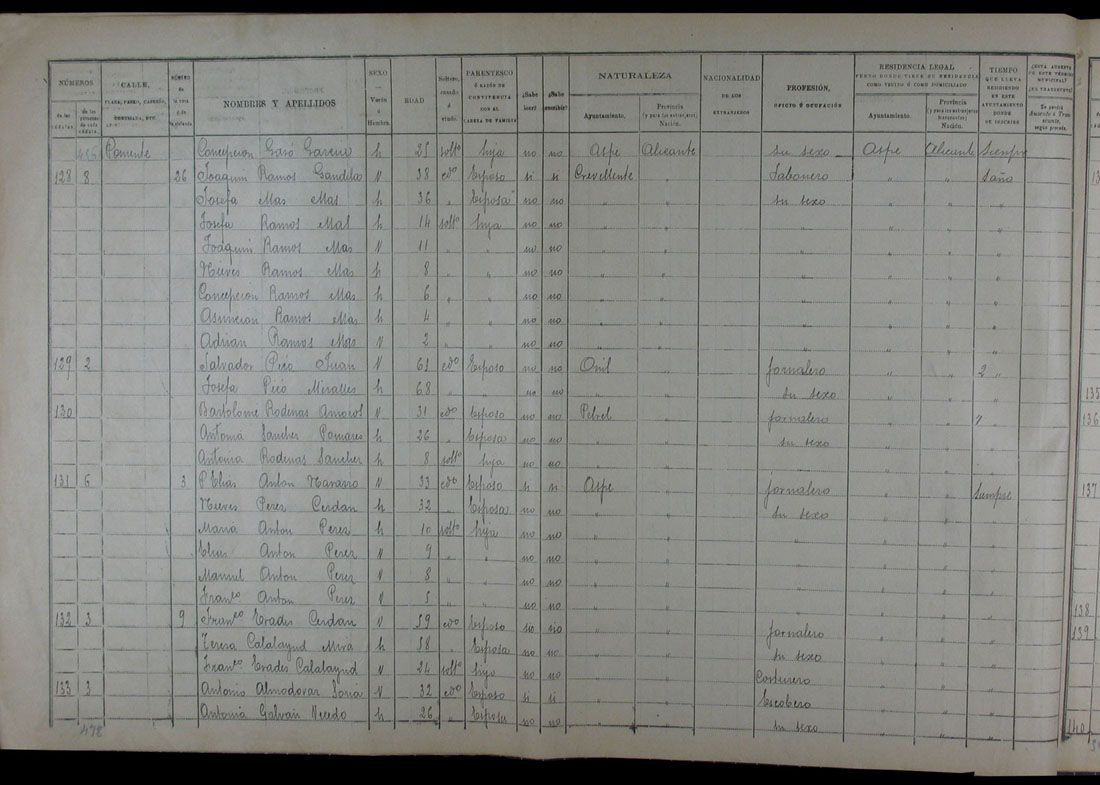 NÚMEROS CALLE, NÚMERO NOMBRES Y APELLIDOS SEXO Varón ó Hembra. EDAD Soltero, casado ó viudo. PARENTESCO Ó RAZÓN DE CONVIVENCIA CON EL CABEZA DE FAMILIA ¿Sabe leer? ¿Sabe escribir? NATURALEZA NACIONALIDAD DE LOS EXTRANJEROS PROFESIÓN, OFICIO Ú OCUPACIÓN RESIDENCIA LEGAL TIEMPO QUE LLEVA RESIDIENDO EN ESTE AYUNTAMIENTO DONDE SE INSCRIBE
Ayuntamiento. Provincia (y para los extranjeros) Nación. Ayuntamiento. Provincia (y para los extranjeros) Nación.
Poniente Concepcion h 25 soltº hija no no Aspe Alicante su sexo Aspe Alicante Siempre
128 8 26 Joaquin Ramos Gandila V 38 cdº Esposo si si Crevillente Jabonero " "
Josefa Mas Mas h 36 " Esposa no no " " su sexo " " "
Josefa Ramos Mas h 14 soltº hija no no " " " " " "
Joaquin Ramos Mas V 11 " " no no " " " " " "
Nieves Ramos Mas h 8 " " no no " " " " " "
Concepcion Ramos Mas h 6 " " no no " " " " " "
Asuncion Ramos Mas h 4 " " no no " " " " " "
Adrian Ramos Mas V 2 " " no no " " " " " "
129 2 Salvador Picó Juan V 61 cdº Esposo no no Onil " jornalero " " 2 "
Josefa Picó Miralles h 68 no no " " su sexo " " "
130 Bartolome Rodenas V 31 cdº Esposo no no Petrel " jornalero " " 7
Antonia Sancher Pomares h 26 " Esposa no no " " su sexo " " "
Antonia Rodenas Sancher h 8 soltº hija no no " " " " " "
131 6 3 Elias Anton Navarro V 33 cdº Esposo si si Aspe " jornalero " " Siempre
Nieves Perez Cerdan h 32 " Esposa no no " " su sexo " " "
Maria Anton Perez h 10 soltº hija no no " " " " " "
Elias Anton Perez V 9 " " no no " " " " " "
Manuel Anton Perez V 8 " " no no " " " " " "
Francº Anton Perez V 5 " " no no " " " " " "
132 3 9 Francº Erades Cerdan V 59 cdº Esposo no no " " jornalero " " "
Teresa Calatayud Mira h 58 " Esposa no no " " su sexo " " "
Francº Erades Calatayud V 24 soltº hijo no no " " " " "
133 3 Antonio Almodovar Soria V 32 cdº Esposo si si " " Escobero " " "
Antonia Galvañ h 26 " Esposa no no " " su sexo " " "
478
135
136
137
138
139
140